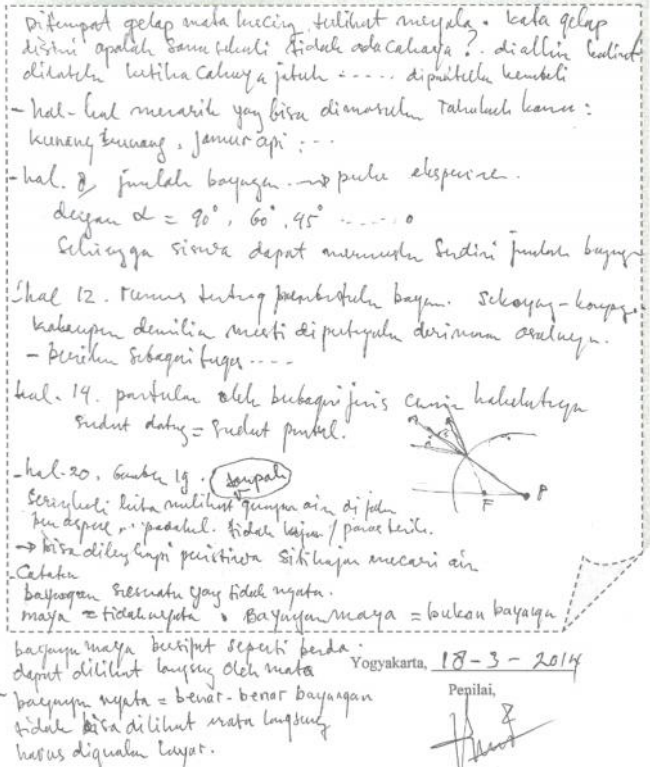 Ditempat gelap mata kucing terlihat menyala. kata gelap
disini apakah sama sekali tidak ada cahaya?. diakhir kalimat
dikatakan ketika Cahaya jatuh ..... kembali
- hal-hal menarik yang bisa dimasukkan Tahukah kamu:
kunang kunang, Jamur api; ...
- hal. 8 jumlah bayangan → perlu eksperimen.
dengan α = 90°, 60°, 45° ..... °
Sehingga siswa dapat Sendiri jumlah bayangan
- hal 12. rumus tentang bayangan.
demikian mesti asalnya.
- berikan sebagai tugas ....
hal. 14. pantulan oleh berbagai jenis cermin
sudut datang = sudut pantul.
F
P
- hal. 20. Gambar 19. tampak
Seringkali kita melihat air di jalan
beraspal .. padahal. tidak
→ bisa dilengkapi peristiwa Siti hajar mencari air
- Catatan
bayangan sesuatu yang tidak nyata.
maya = tidak nyata. Bayangan maya = bukan bayangan
bayangan maya bersifat seperti benda.
dapat dilihat langsung oleh mata
Yogyakarta, 18-3-2014
- bayangan nyata = benar-benar bayangan
Penilai,
tidak bisa dilihat mata langsung
harus digunakan layar.